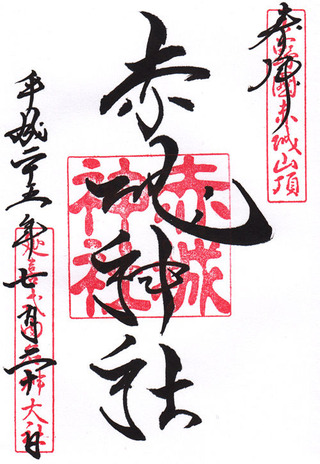 奉拝
上野國赤城山頂
赤城神社
赤城神社
平成二十五年七月二十日
大社